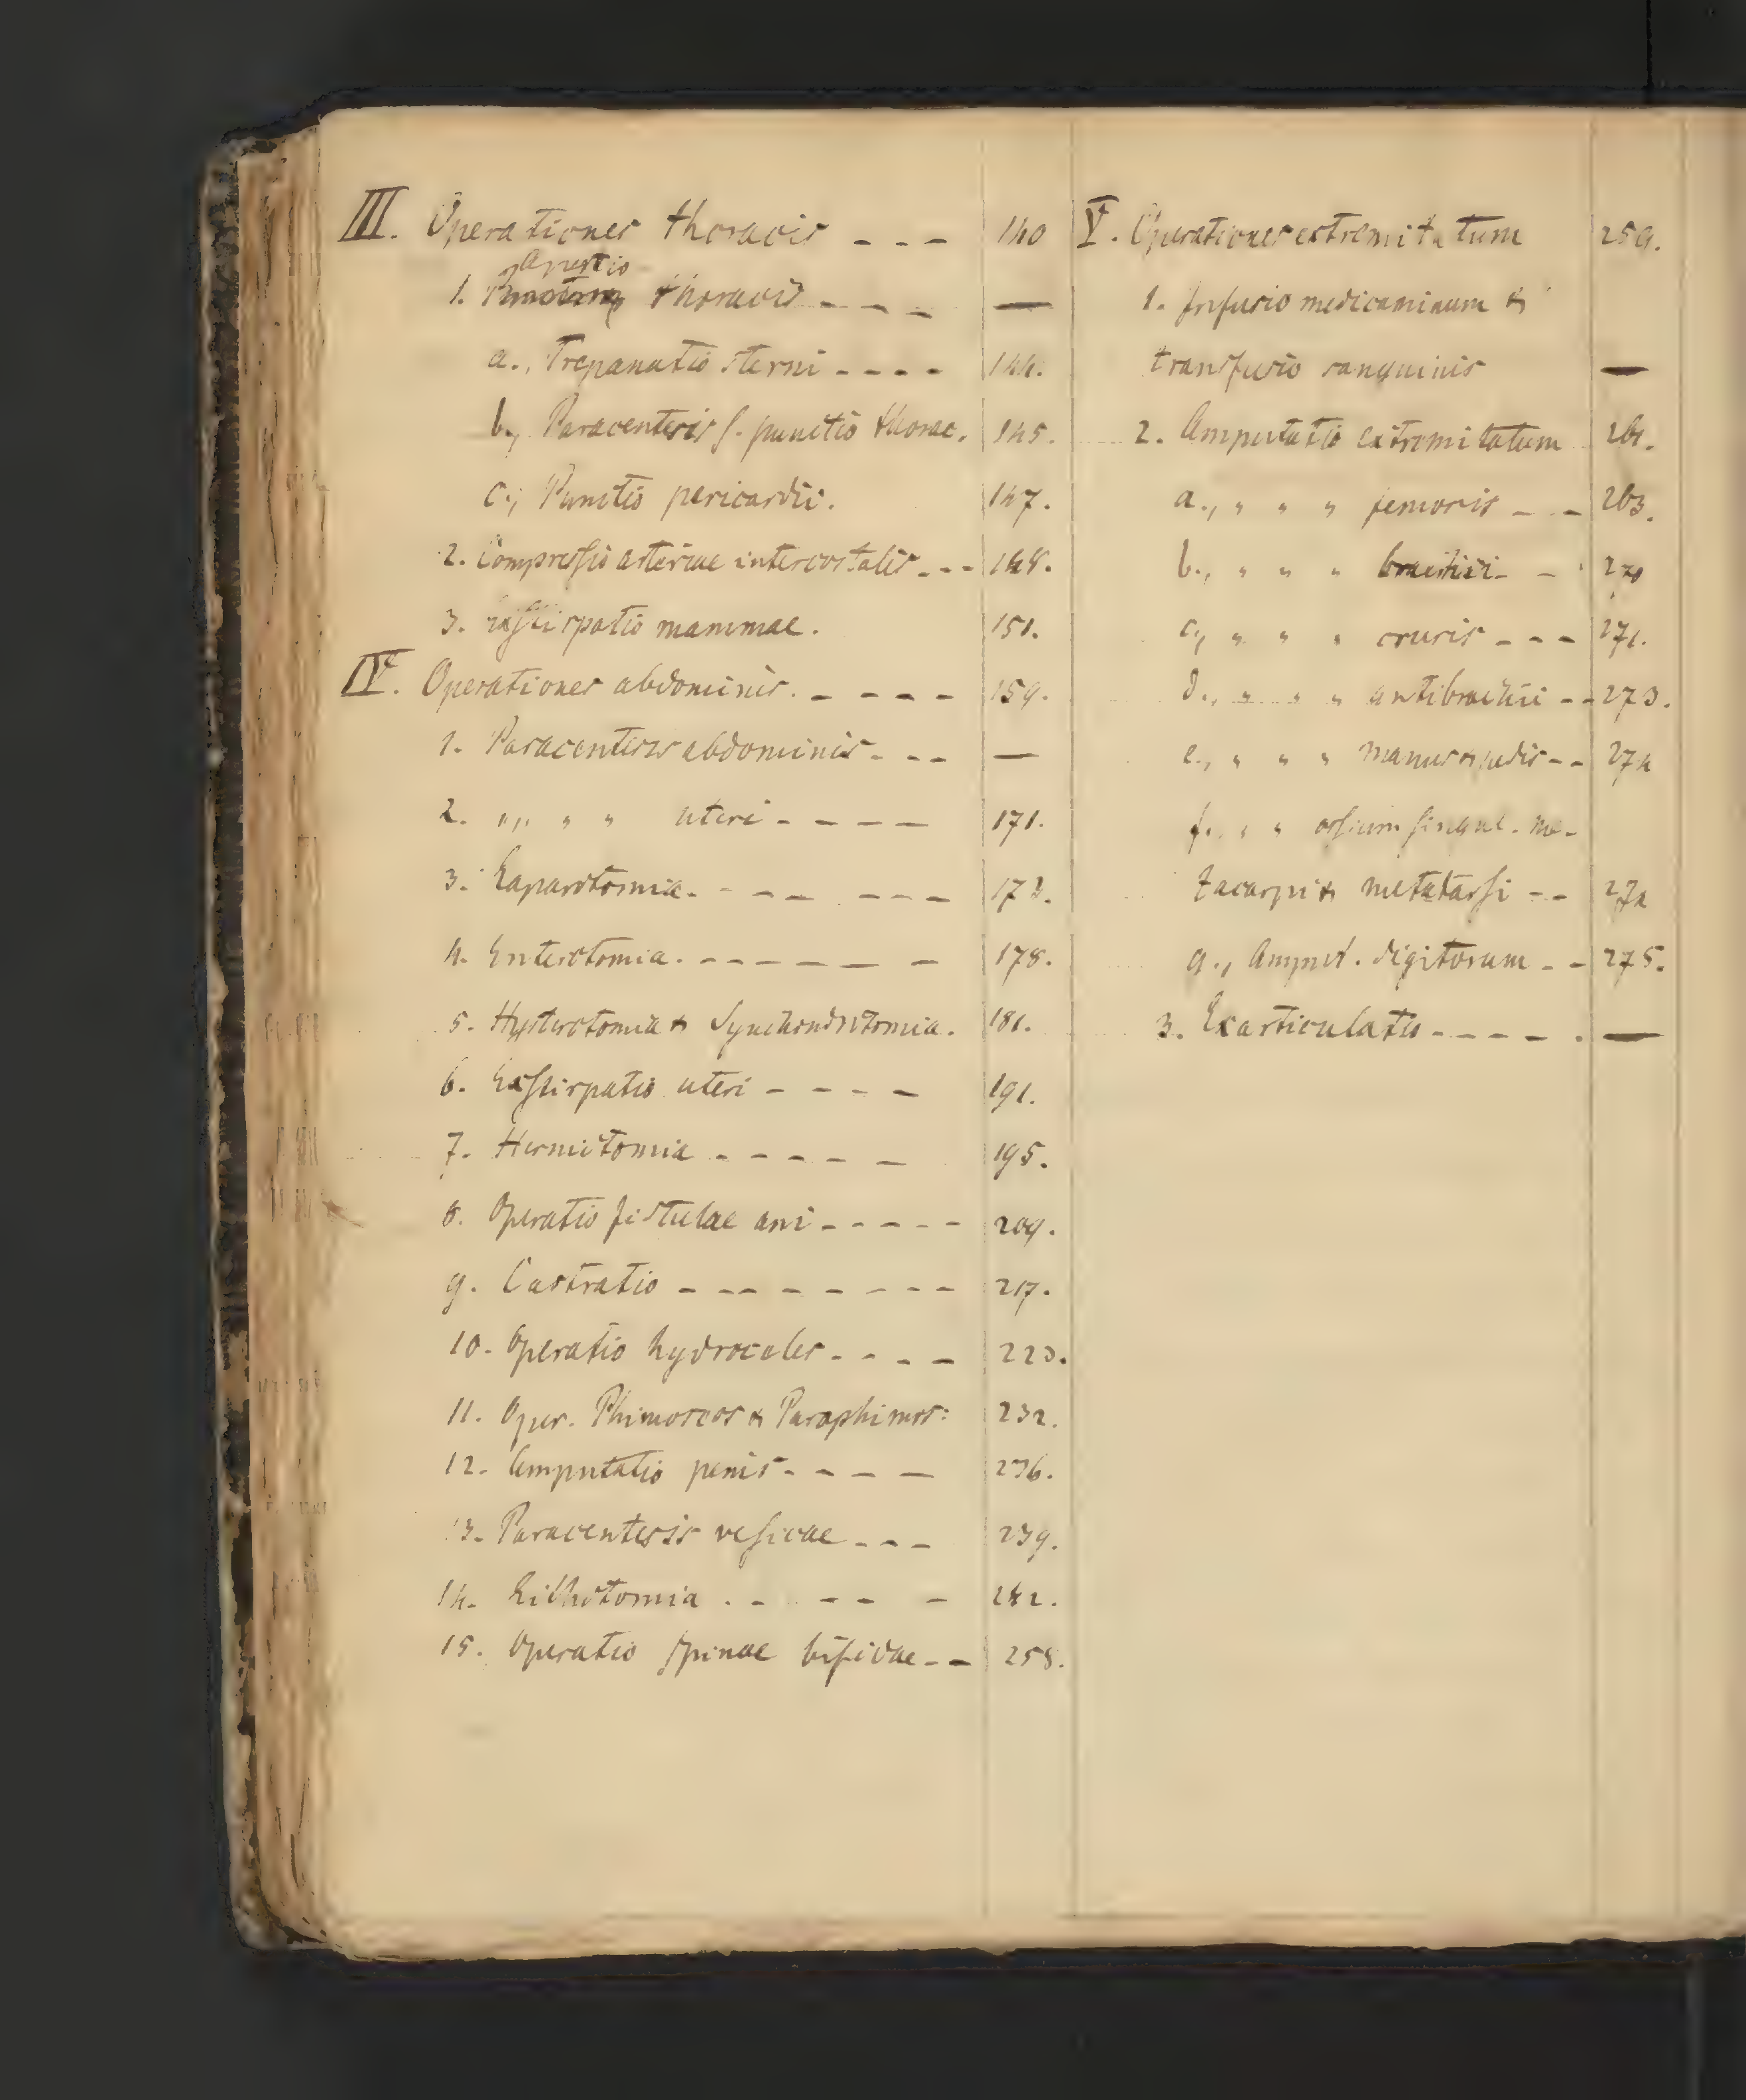 III. Operationes thoracis - - - 140
Apertio
1. thoracis - - - - —
a., Trepanatio sterni - - - - 144.
b., Paracentesis s. punctio thorac. 145.
c., Punctio pericardii. 147.
2. Compressio arteriae intercostalis - - - 148.
3. Exstirpatio mammae. 151.
IV. Operationes abdominis. - - - - 159.
1. Paracentesis abdominis - - - —
2. " " " uteri - - - - 171.
3. Laparotomia - - - - - - - 173.
4. Enterotomia - - - - - - - 178.
5. Hysterotomia & Synchondrotomia. 181.
6. Exstirpatio uteri - - - - 191.
7. Herniotomia - - - - - 195.
8. Operatio fistulae ani - - - - - 209.
9. Castratio - - - - - - - - 217.
10. Operatio hydroceles - - - - 223.
11. Oper. Phimoseos & Paraphimos: 232.
12. Amputatio penis - - - - 236.
13. Paracentesis vesicae - - - 239.
14. Lithotomia - - - - - 242.
15. Operatio spinae bifidae - - 258.
V. Operationes extremitatum 259.
1. Infusio medicaminum &
transfusio sanguinis —
2. Amputatio extremitatum 261.
a., " " " femoris - - 263.
b., " " " brachii - - 270
c., " " " cruris - - - 271.
d., " " " antibrachii - - 273.
e., " " " manus & pedis - - 274
f., " " ossium singul. me-
tacarpi & metatarsi - - 274
g., Amput. digitorum - - 275.
3. Exarticulatio - - - - . —